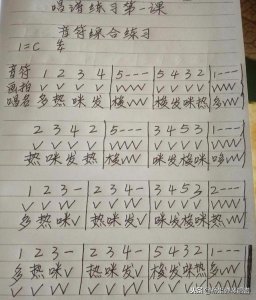 唱谱练习第一课
音符综合练习
1=C 4/4
音符 1 2 3 4 | 5--- | 5 4 3 2 | 1---
画拍 ∨ ∨ ∨ ∨ | ∨∨∨∨ | ∨ ∨ ∨ ∨ | ∨∨∨∨
唱名 多 热 咪 发 | 梭∨∨∨ | 梭 发 咪 热 | 多∨∨∨
2 3 4 2 | 5--- | 3 4 5 3 | 1---
∨ ∨ ∨ ∨ | ∨∨∨∨ | ∨ ∨ ∨ ∨ | ∨∨∨∨
热 咪 发 热 | 梭∨∨∨ | 咪 发 梭 咪 | 多∨∨∨
1 2 3 - | 2 3 4 - | 3 4 5 3 | 2---
∨ ∨ ∨ ∨ | ∨ ∨ ∨ ∨ | ∨ ∨ ∨ ∨ | ∨∨∨∨
多 热 咪 ∨ | 热 咪 发 ∨ | 咪 发 梭 咪 | 热∨∨∨
1 2 3 - | 2 3 4 - | 5 4 3 2 | 1---
多 热 咪 ∨ | 热 咪 发 ∨ | 梭 发 咪 热 | 多∨∨∨
∨ ∨ ∨ ∨ | ∨ ∨ ∨ ∨ | ∨ ∨ ∨ ∨